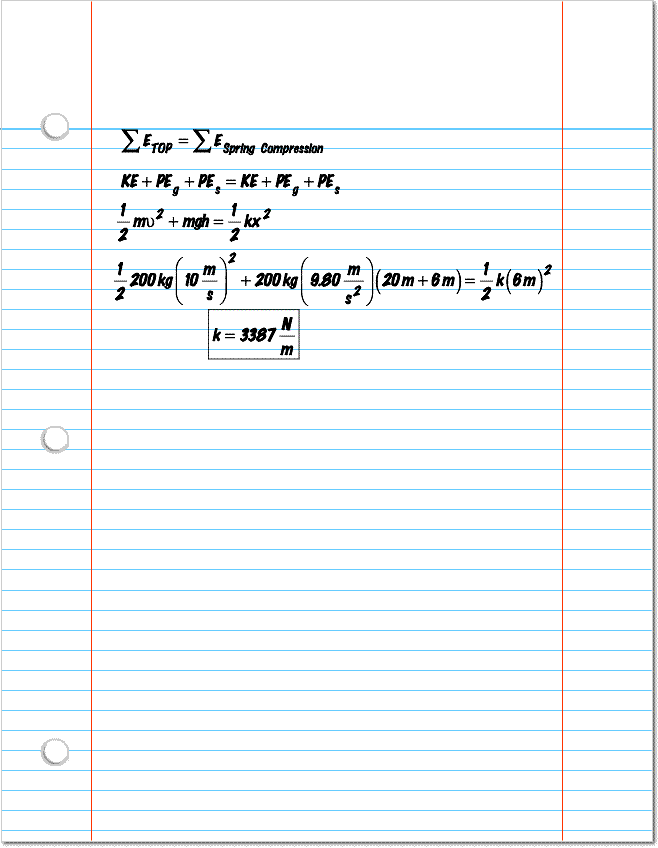 ∑E_TOP = ∑E_Spring Compression
KE + PE_g + PE_s = KE + PE_g + PE_s
1/2 mυ² + mgh = 1/2 kx²
1/2 200 kg (10 m/s)² + 200 kg (9.80 m/s²)(20 m + 6 m) = 1/2 k(6 m)²
k = 3387 N/m